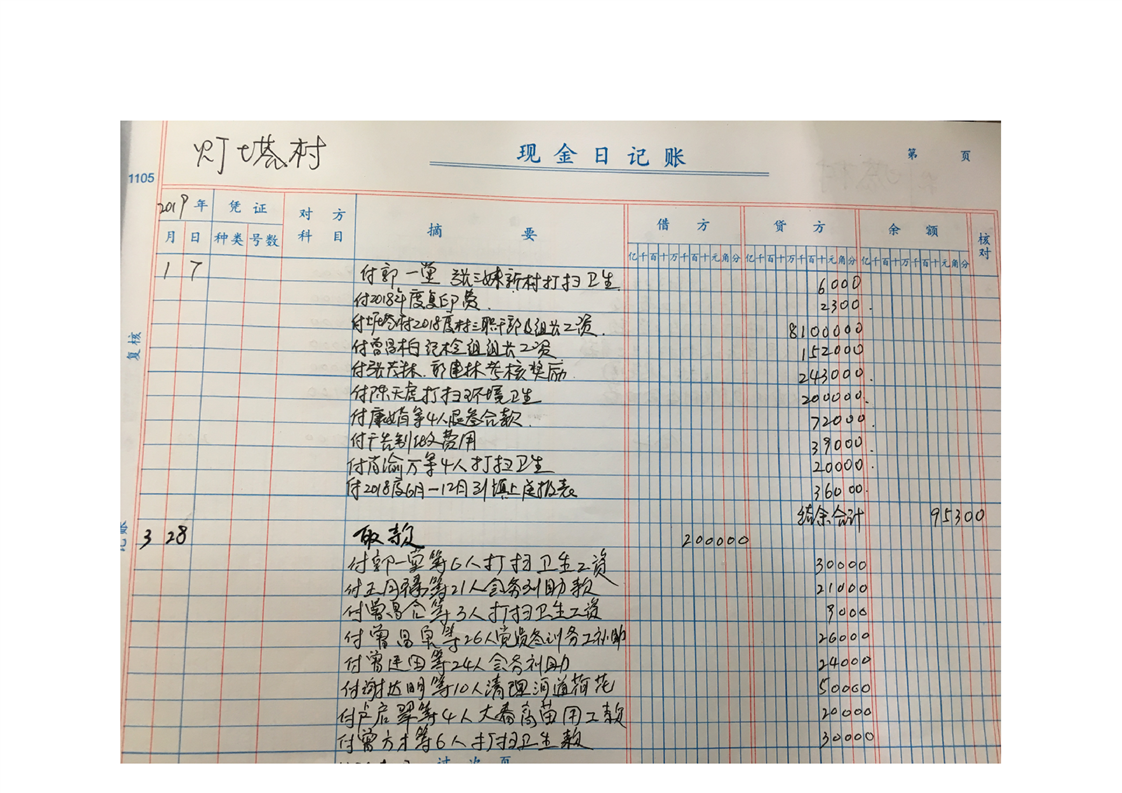 灯塔村
现金日记账
第 页
1105
2019年 凭证 对方科目 摘要 借方 贷方 余额 核对
月 日 种类 号数 亿千百十万千百十元角分 亿千百十万千百十元角分 亿千百十万千百十元角分
复核
1 7 付郭一堂 张三妹新村打扫卫生 6000
付2018年度复印费 2300
付灯塔村2018度村三职干部及组长工资 8100000
付曾昌柏记检组组长工资 152000
付张茂林、郭建林考核奖励 243000
付陈天虎打扫环境卫生 200000
付廖 等4人 合款 72000
付广告制 费用 39000
付肖渝万等4人打扫卫生 20000
付2018度6月—12月 填上 报表 36000
结余合计 95300
3 28 取款 200000
付郭一堂等6人打扫卫生工资 30000
付王 等21人会务补助款 21000
付曾昌合等3人打扫卫生工资 9000
付曾昌 等26人党员冬训务工补助 26000
付曾连国等24人会务补助 24000
付谢达明等10人清理河道荷花 50000
付卢启翠等4人大春育苗用工款 20000
付曾方才等6人打扫卫生款 30000
过次页